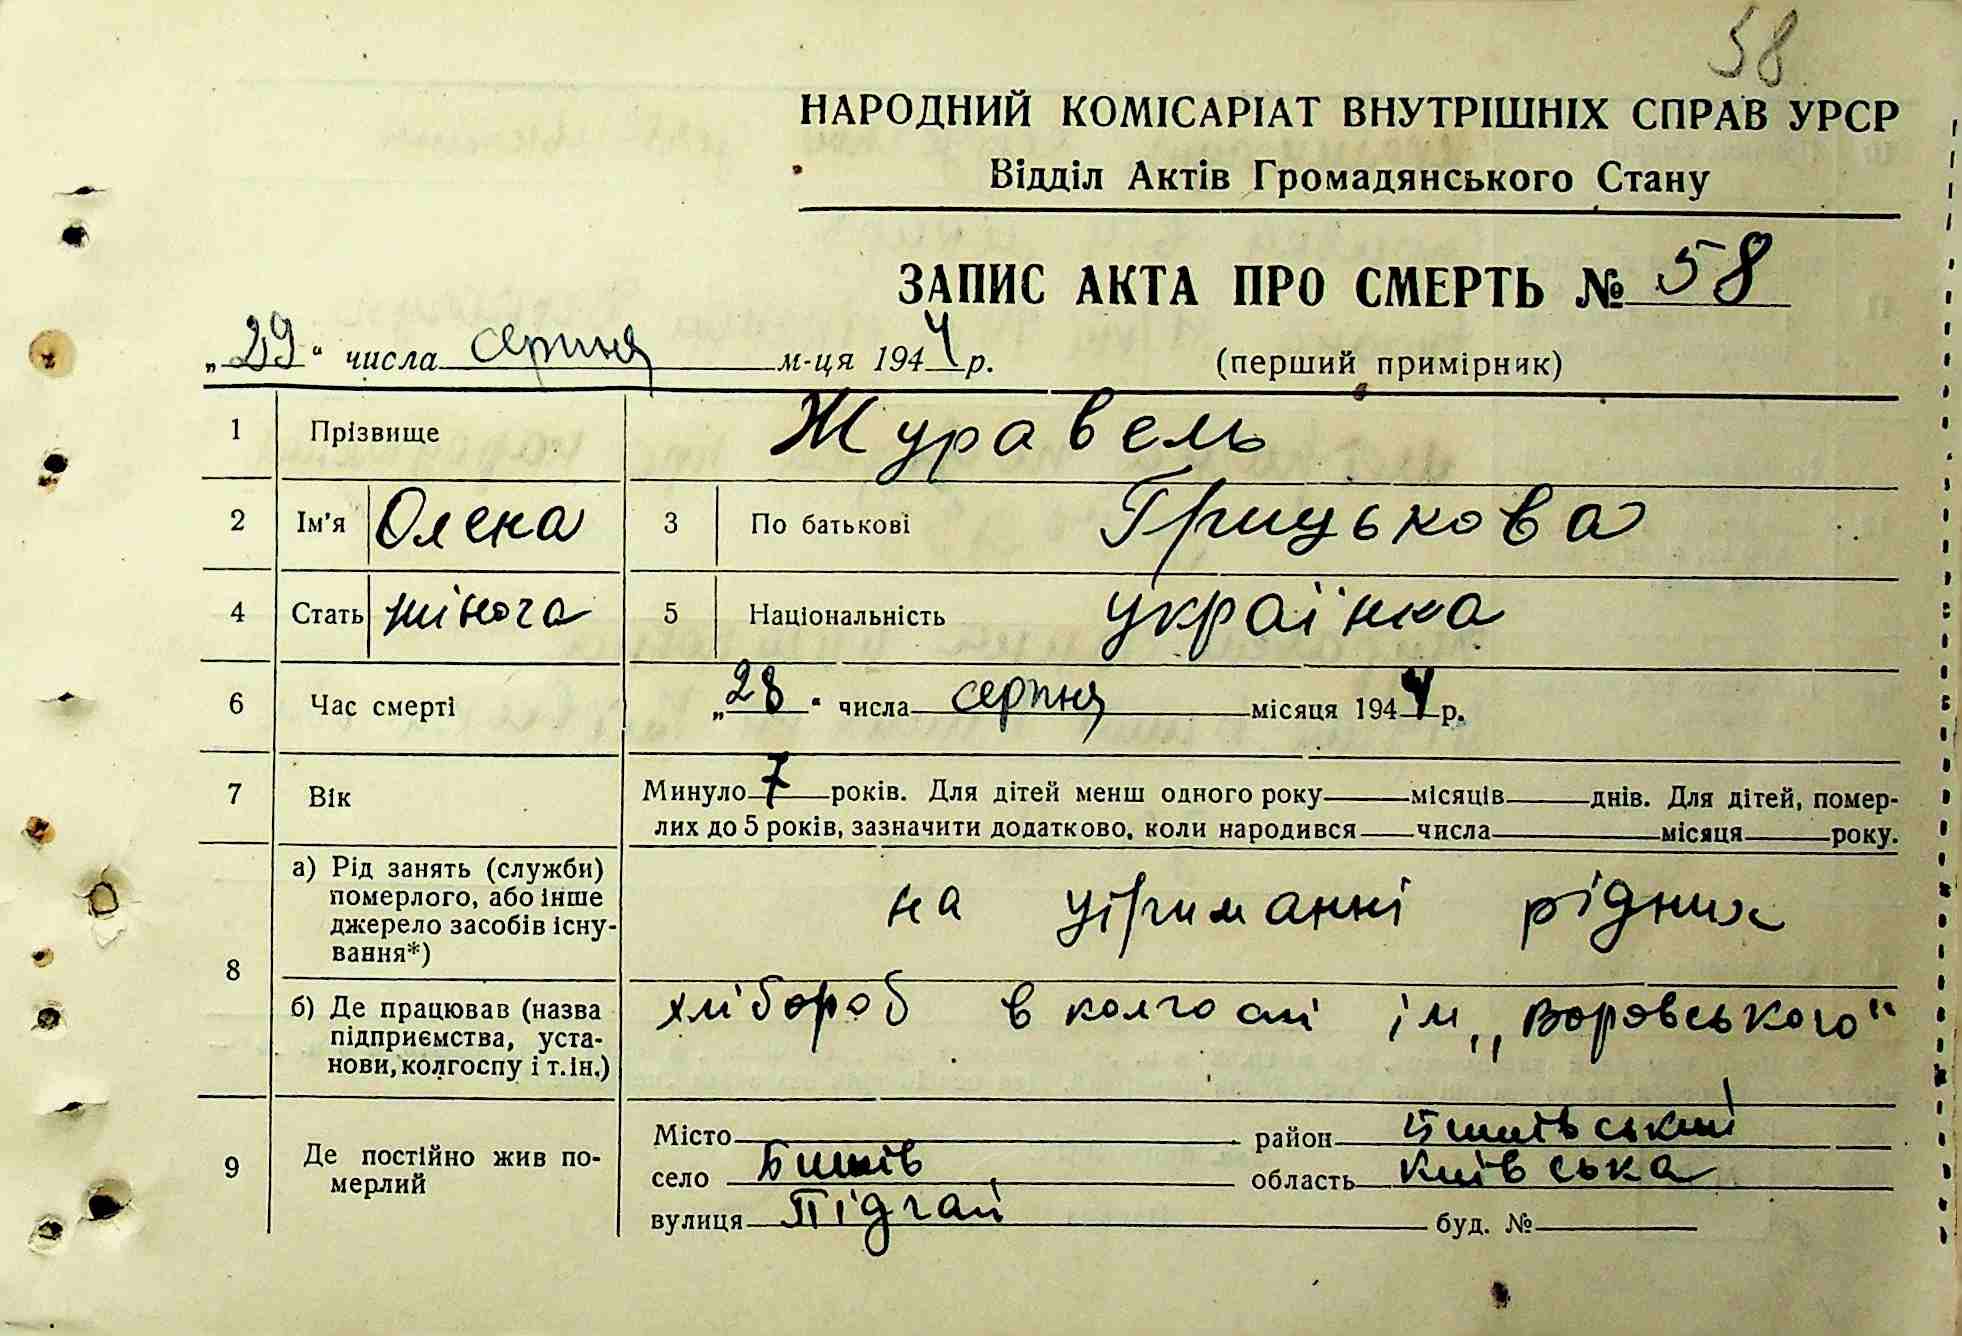 58
НАРОДНИЙ КОМІСАРІАТ ВНУТРІШНІХ СПРАВ УРСР
Відділ Актів Громадянського Стану
ЗАПИС АКТА ПРО СМЕРТЬ № 58
„29“ числа серпня м-ця 1944 р. (перший примірник)
1 Прізвище Журавель
2 Ім'я Олена 3 По батькові Грицькова
4 Стать жіноча 5 Національність українка
6 Час смерті „28“ числа серпня місяця 1944 р.
7 Вік Минуло 7 років. Для дітей менш одного року місяців днів. Для дітей, помер-
лих до 5 років, зазначити додатково, коли народився числа місяця року.
8 а) Рід занять (служби) померлого, або інше джерело засобів існу-вання*) на утриманні рідних
б) Де працював (назва підприємства, уста-нови, колгоспу і т. ін.) хлібороб в колгоспі ім „Воровського"
9 Де постійно жив по-мерлий
Місто район Бишівський
село Бишів область Київська
вулиця Підгай буд. №